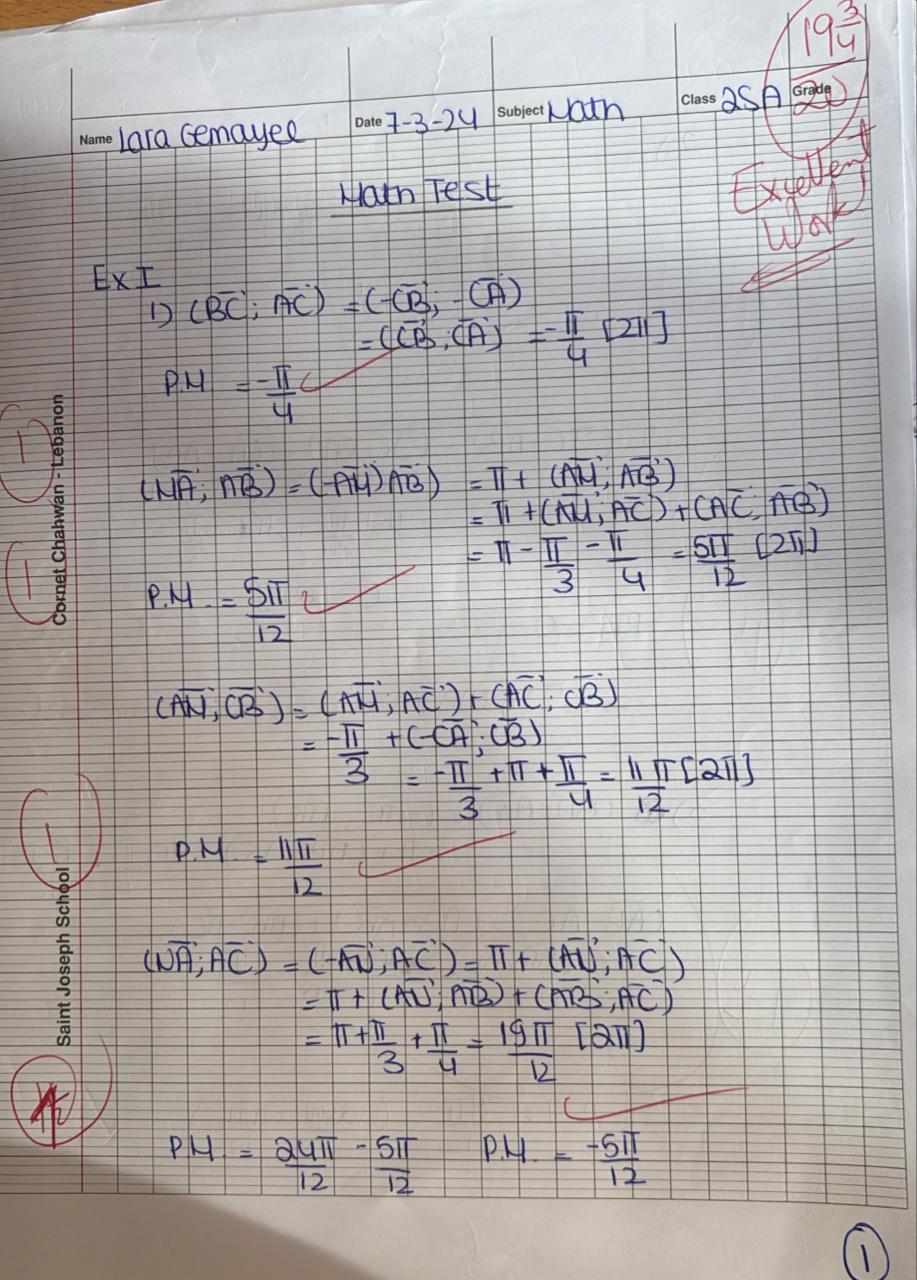 19 3/4
20
Name Lara Gemayel
Date 7-3-24
Subject Math
Class 2SA
Grade
Excellent
Work
Math Test
Ex I
1) (BC; AC) = (-CB; -CA)
= (CB; CA) = -π/4 [2π]
P.M = -π/4
1
(MA; AB) = (-AM; AB) = π + (AM; AB)
= π + (AM; AC) + (AC; AB)
= π - π/3 - π/4 = 5π/12 [2π]
1
P.M. = 5π/12
(AM; CB) = (AM; AC) + (AC; CB)
= -π/3 + (-CA; CB)
= -π/3 + π + π/4 = 11π/12 [2π]
1
P.M. = 11π/12
(NA; AC) = (-AN; AC) = π + (AN; AC)
= π + (AN; AB) + (AB; AC)
= π + π/3 + π/4 = 19π/12 [2π]
P.M. = 24π/12 - 5π/12 P.M. = -5π/12
Cornet Chahwan - Lebanon
Saint Joseph School
1